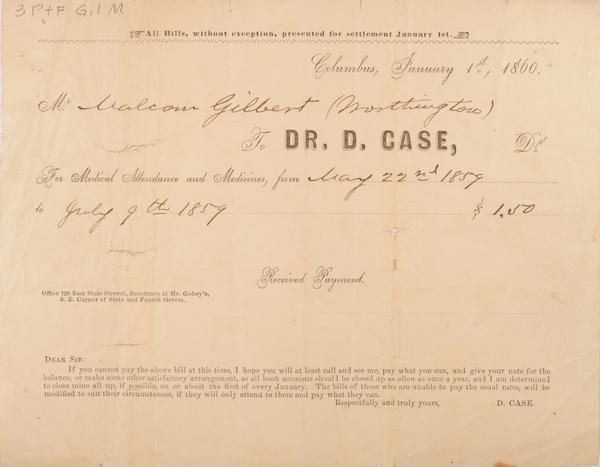 3 P+F Gil M
All Bills, without exception, presented for settlement January 1st.
Columbus, January 1st, 1860.
Mr Malcom Gilbert (Worthington)
To DR. D. CASE, Dr.
For Medical Attendance and Medicines, from May 22nd 1859
to July 9th 1859 $ 1.50
Received Payment.
Office 120 East State Street, Residence at Mr. Gobey's,
S. E. Corner of State and Fourth Streets.
DEAR SIR:
If you cannot pay the above bill at this time, I hope you will at least call and see me, pay what you can, and give your note for the
balance, or make some other satisfactory arrangement, as all book accounts should be closed up as often as once a year, and I am determined
to close mine all up, if possible, on or about the first of every January. The bills of those who are unable to pay the usual rates, will be
modified to suit their circumstances, if they will only attend to them and pay what they can.
Respectfully and truly yours, D. CASE.